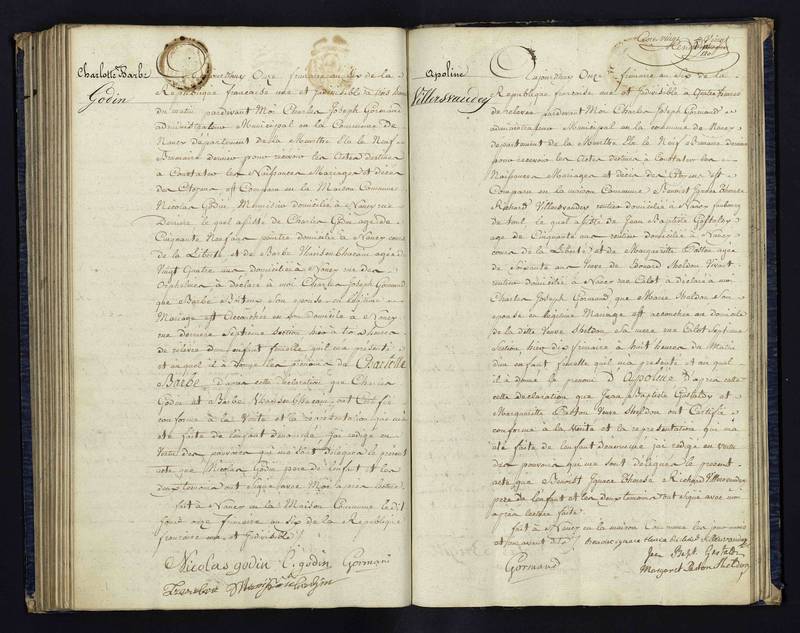 Charlotte Barbe
Godin
Aujourdhuy Onze frimaire au Six de la
Republique francaise une et indivisible à trois heures
du matin pardevant Moi Charles Joseph Gormand
administrateur Municipal en la Commune de
Nancy Département de la Meurthe Elu le Neuf
Brumaire dernier pour recevoir les Actes destinés
à Constater les Naissances Mariages et décès
des Citoyens, est Comparu en la Maison Commune
Nicolas Godin Menuisier domicilié à Nancy rue
Derriere lequel assisté de Charles Godin agé de
Cinquante Neuf ans peintre domicilié à Nancy cours
de la Liberté et de Barbe agée de
Vingt Quatre ans domiciliée à Nancy rue des
Orphelines à déclaré à moi Charles Joseph Gormand
que Barbe son epouse en légitime
Mariage est Accouchée en son domicile à Nancy
rue derriere Septieme Section hier à trois heures
de relevée d'un Enfant femelle qu'il m'a présenté
et auquel il a donné les prénoms de Charlotte
Barbe, d'apres cette déclaration que Charles
Godin et Barbe ont Certifié
conforme à la Verité et la représentation qui m'a
été faite de l'enfant dénommé, j'ai redigé en
vertu des pouvoirs qui me sont délégués le présent
acte que Nicolas Godin pere de l'enfant et les
deux temoins ont signé avec Moi apres lecture.
fait à Nancy en la Maison Commune le dit
jour onze frimaire au six de la République
francaise une et Indivisible /
Nicolas godin C. godin Gormand
Apoline
Villersvaudey
Aujourdhuy Onze frimaire au six de la
Republique francaise une et Indivisible à Quatre heures
de relevée pardevant Moi Charles Joseph Gormand
administrateur Municipal en la commune de Nancy
departement de la Meurthe Elu le Neuf Brumaire dernier
pour recevoir les Actes destinés à Constater les
Naissances Mariages et décès des Citoyens est
Comparu en la maison Commune Benoist Ignace Therese
Richard Villersvaudey rentier domicilié à Nancy faubourg
de toul lequel assisté de Jean Baptiste Gastaldy
agé de Cinquante ans rentier domicilié à Nancy
cours de la Liberté et de Marguerite Paston agée
de Soixante ans Veuve de Edouard Sheldon Vivant
rentier domiciliée à Nancy rue Callot à déclaré à moi
Charles Joseph Gormand, que Marie Sheldon son
epouse en légitime Mariage est accouchée au domicile
de la ditte Veuve Sheldon, sa mere rue Callot Septieme
Section, hier dix frimaire à huit heures du Matin
d'un enfant femelle qu'il m'a présenté et auquel
il a donné le prenom d'Apoline D'apres cette
cette declaration que Jean Baptiste Gastaldy et
Marguerite Paston Veuve Sheldon ont Certifiée
conforme à la Verité et la représentation qui m'a
été faite de l'enfant dénommé j'ai redigé en vertu
des pouvoirs qui me sont délégués le présent
acte, que Benoist Ignace Therese Richard Villersvaudey
pere de l'enfant et les deux temoins ont signé avec moi
apres lecture faite.
fait à Nancy en la maison Commune les jour mois
et an avant dits /
Jean Bapt. Gastaldy
Gormand Margaret Paston Sheldon